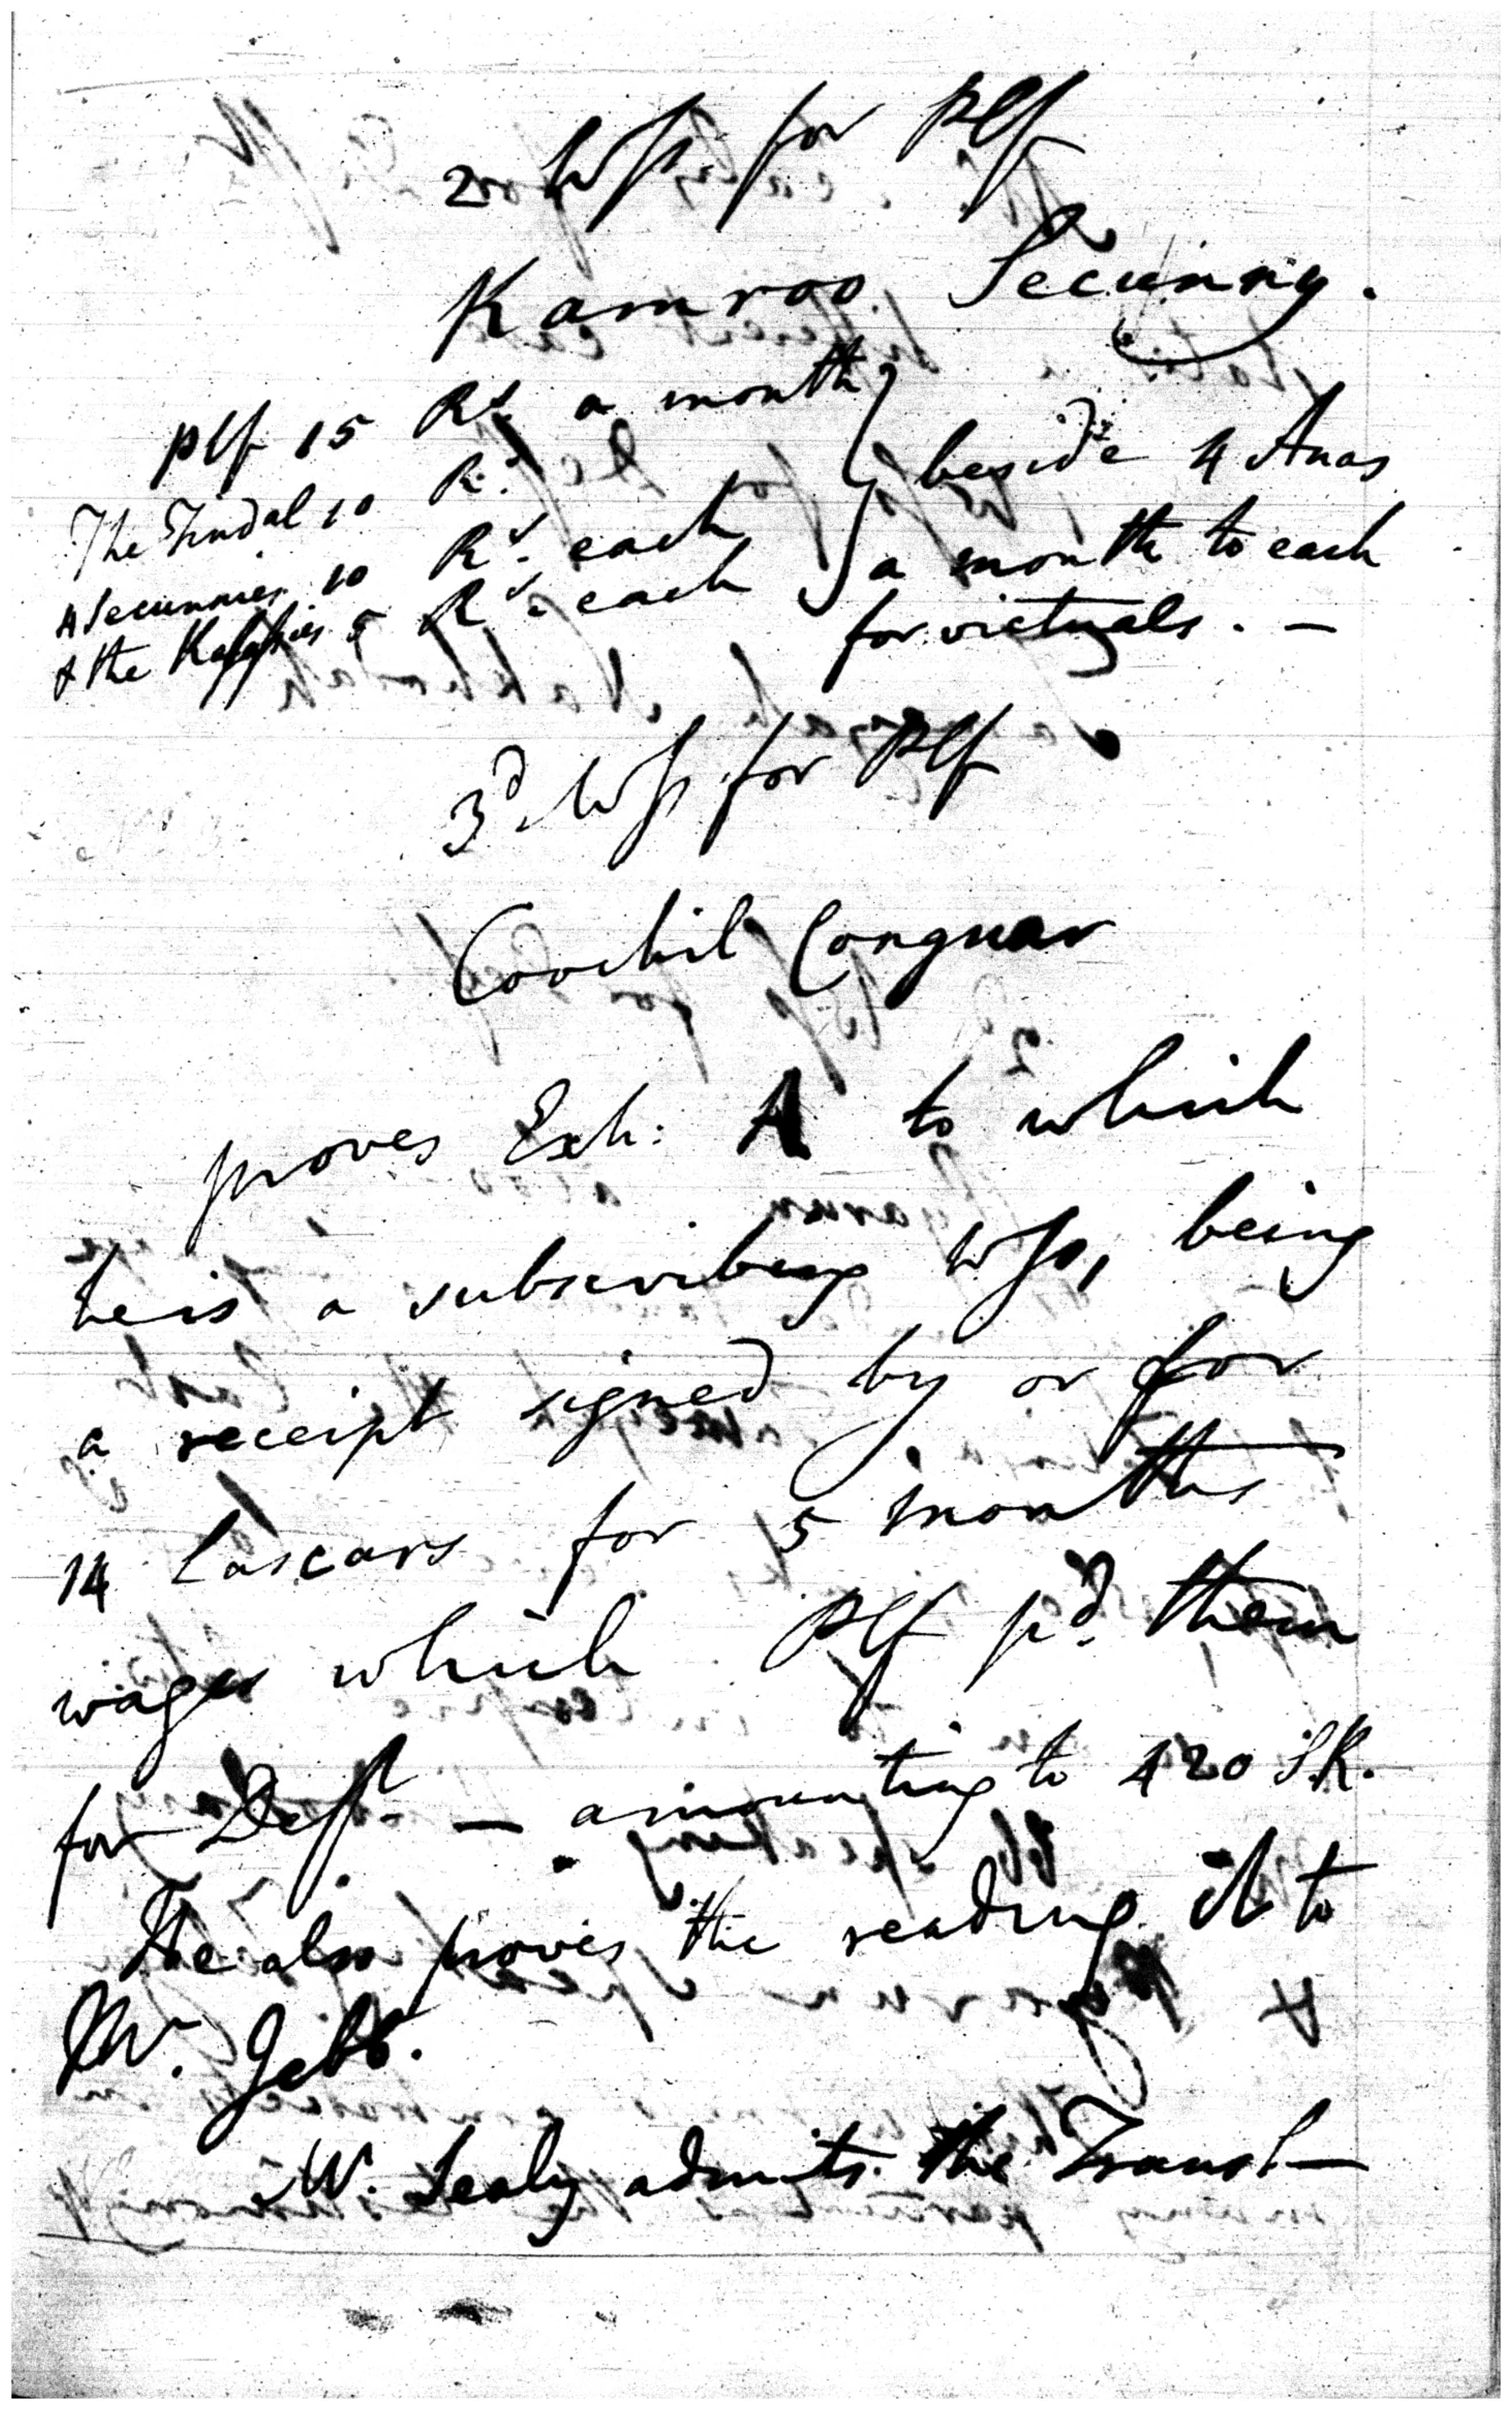 2 Wss. for Plf
Kamroo Secunny.
Plf 15 Rs. a month
The Tindal 10 Rs. beside 4 Anas
4 Secunnies 10 Rs. each a month to each
& the Kalashies 5 Rs. each for victuals. —
3d. Wss. for Plf
Coochil Congnar
proves Exh: A to which
he is a subscribing Wss, being
a receipt signed by or for
14 Lascars for 5 months
wages which Plf pd. them
for Deft. — amounting to 420 S.R.
He also proves the reading it to
Mr. Jebb.
Mr. Sealy admits the Transl—